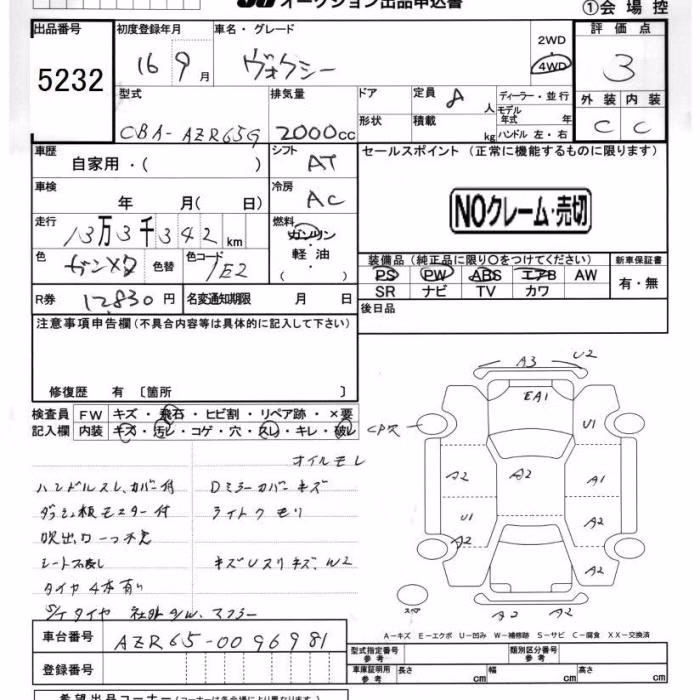 オークション出品申込書
①会場控
出品番号 5232
初度登録年月 16 9月
車名・グレード ヴォクシー
2WD
4WD
評価点 3
外装 C
内装 C
型式 CBA-AZR65G
排気量 2000cc
ドア
形状
定員 8人
積載 kg
ディーラー・並行
モデル年式 年
ハンドル 左・右
車歴 自家用・( )
シフト AT
セールスポイント (正常に機能するものに限ります)
車検 年 月( 日)
冷房 AC
NOクレーム・売切
走行 13万3千342km
燃料 ガソリン
軽油
( )
色 ガンメタ
色替
色コード 1E2
装備品 (純正品に限り○をつけてください)
新車保証書
PS PW ABS エアB AW
SR ナビ TV カワ
有・無
R券 12,830円
名変通知期限 月 日
後日品
注意事項申告欄 (不具合内容等は具体的に記入して下さい)
修復歴 有 〔箇所 〕
検査員記入欄
FW キズ・飛石・ヒビ割・リペア跡・×要
内装 キズ・汚レ・コゲ・穴・スレ・キレ・破レ
オイルモレ
ハンドルスレ、カバー付
Dミラーカバーキズ
ダッシュ板モニター付
ライトクモリ
吹出口一つ不良
シート穴
キズUスリキズ、W2
タイヤ4本有り
S/Tタイヤ 社外AW、マフラー
A3 U2
EA1
U1
CP欠
A2 A2 A1
U1 A2
A2 A2
A2 A2
スペア
A-キズ E-エクボ U-凹み W-補修跡 S-サビ C-腐食 XX-交換済
車台番号 AZR65-0096981
登録番号
型式指定番号 参考
類別区分番号 参考
車庫証明用 参考
長さ cm
幅 cm
高さ cm
希望出品コーナー (コーナーは各会場により異なります)